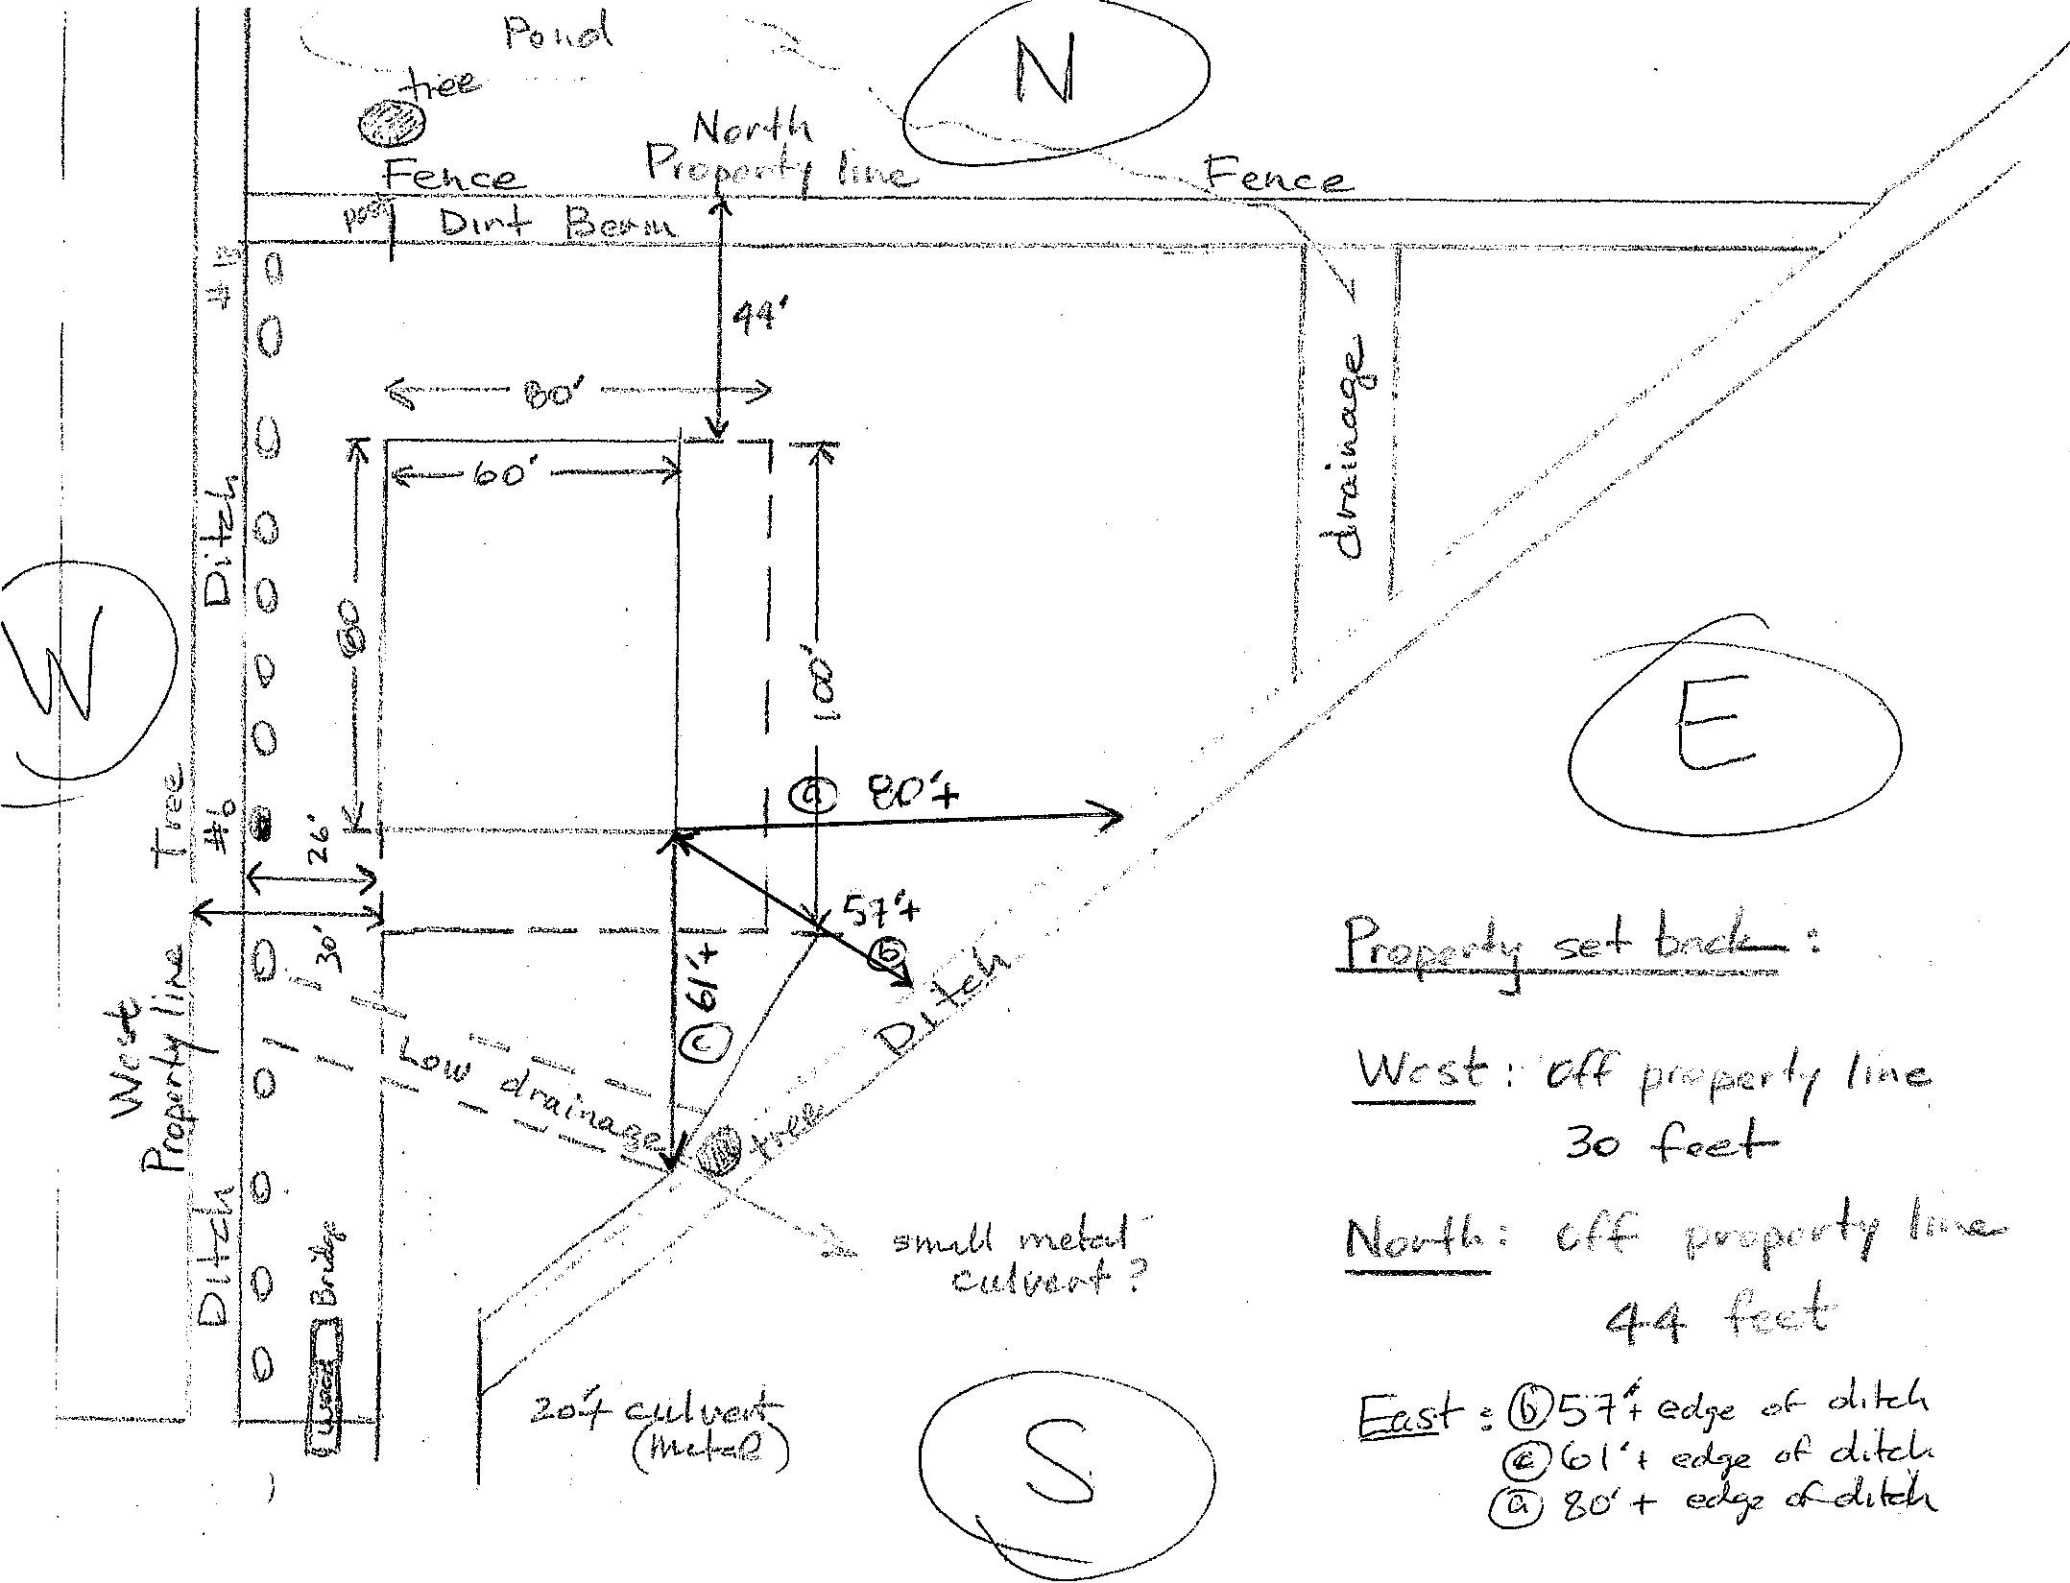 Pond
N
tree
North
Property line
Fence
Fence
post
Dirt Berm
44'
80'
60'
80
100'
drainage
Ditch
W
E
Tree
#6
26'
30'
ⓐ 80'+
57'+
ⓑ
61'+
ⓒ
West
Property line
Low drainage
tree
Ditch
Ditch
Bridge
small metal
culvert?
20'+ culvert
(metal)
S
Property set back:
West: off property line
30 feet
North: off property line
44 feet
East: ⓑ 57'+ edge of ditch
ⓒ 61'+ edge of ditch
ⓐ 80'+ edge of ditch